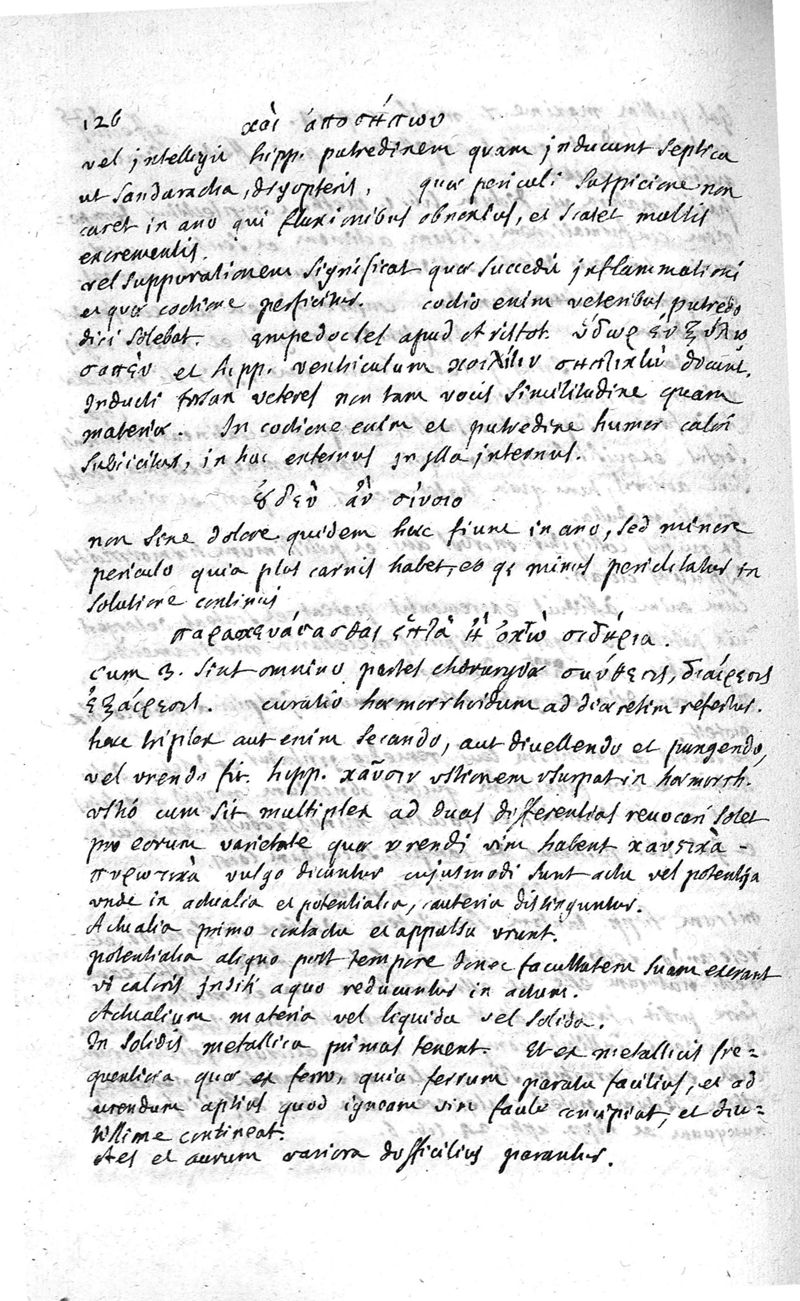 126 καὶ ἀποσήπων
vel intelligit hipp. putredinem quam inducunt septica
ut sandaracha, dryopteris, quæ periculi suspicione non
caret in ano qui fluxionibus obnoxius, et scatet multis
excrementis.
vel suppurationem significat quæ succedit inflammationi
et quæ coctione perficitur. coctio enim veteribus putredo
dici solebat. Empedocles apud Aristot. ὕδωρ ἐν ξύλῳ
σαπὲν et hipp. ventriculum κοιλίην σηπτικὴν vocant.
Inducti forsan veteres non tam vocis similitudine quam
materiæ. In coctione enim et putredine humor calori
subiicitur, in hac externus in illa internus.
ȣδὲν ἂν σίνοιο
non sine dolore quidem hæc fiunt in ano, sed minore
periculo quia plus carnis habet, eo qȝ minus periclitatur in
solutione continui
παρασκευάσασθαι ἑπτὰ ἢ ὀκτὼ σιδήρια.
cum 3. sint omnino partes chirurgiæ σύνθεσις, διαίρεσις
ἐξαίρεσις. curatio hæmorrhoidum ad diæresim refertur.
hæc triplex aut enim secando, aut divellendo et pungendo,
vel vrendo fit. hipp. καῦσιν vstionem vsurpat in hæmorrh.
vstio cum sit multiplex ad duas differentias reuocari solet
pro eorum varietate quæ vrendi vim habent καυστικὰ -
πυρωτικὰ vulgo dicuntur cujusmodi sunt actu vel potentia
vnde in actualia et potentialia, cauteria distinguntur.
Actualia primo contactu et appulsu vrunt.
potentialia aliquo post tempore donec facultatem suam exerant
vi caloris insiti a quo reducuntur in actum.
Actualium materia vel liquida vel solida.
In solidis metallica primas tenent. Et ex metallicis fre=
quentiora quæ ex ferro, quia ferrum paratu facilius, et ad
urendum aptius quod igneam vim facile concipiat, et diu=
tissime contineat.
Aes et aurum rariora difficilius parantur.